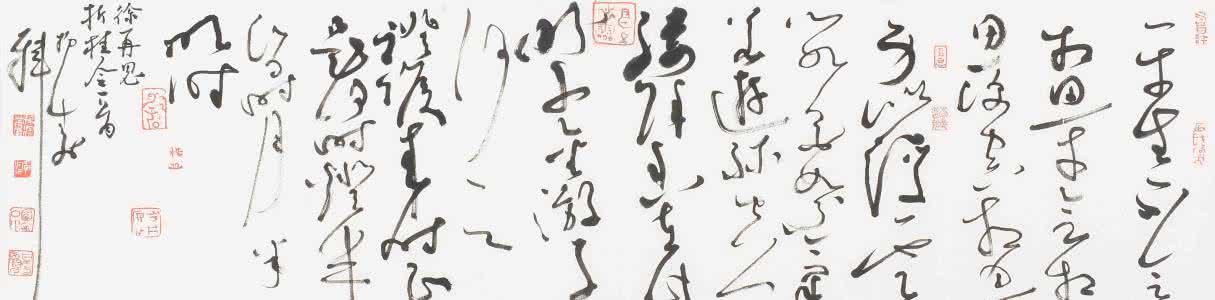 平生不会
相思才会相
思便害相思
身似浮云
心如飛絮氣
若遊絲空一
縷餘香在此
盼千金遊子
何之
證候来时正
是何时燈半
昏时月半
明时
徐再思
折桂令一首